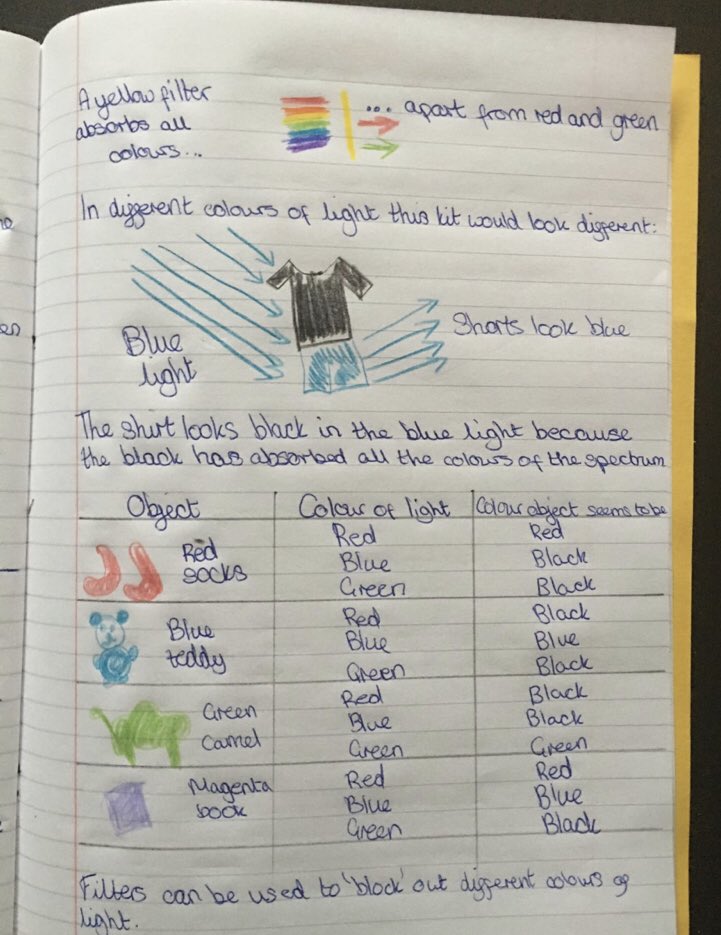 A yellow filter
absorbs all
colours...
... apart from red and green
In different colours of light this kit would look different:
Blue
light
Shorts look blue
The shirt looks black in the blue light because
the black has absorbed all the colours of the spectrum
Object Colour of light Colour object seems to be
Red socks
Red Red
Blue Black
Green Black
Blue teddy
Red Black
Blue Blue
Green Black
Green Camel
Red Black
Blue Black
Green Green
Magenta book
Red Red
Blue Blue
Green Black
Filters can be used to 'block' out different colours of
light.